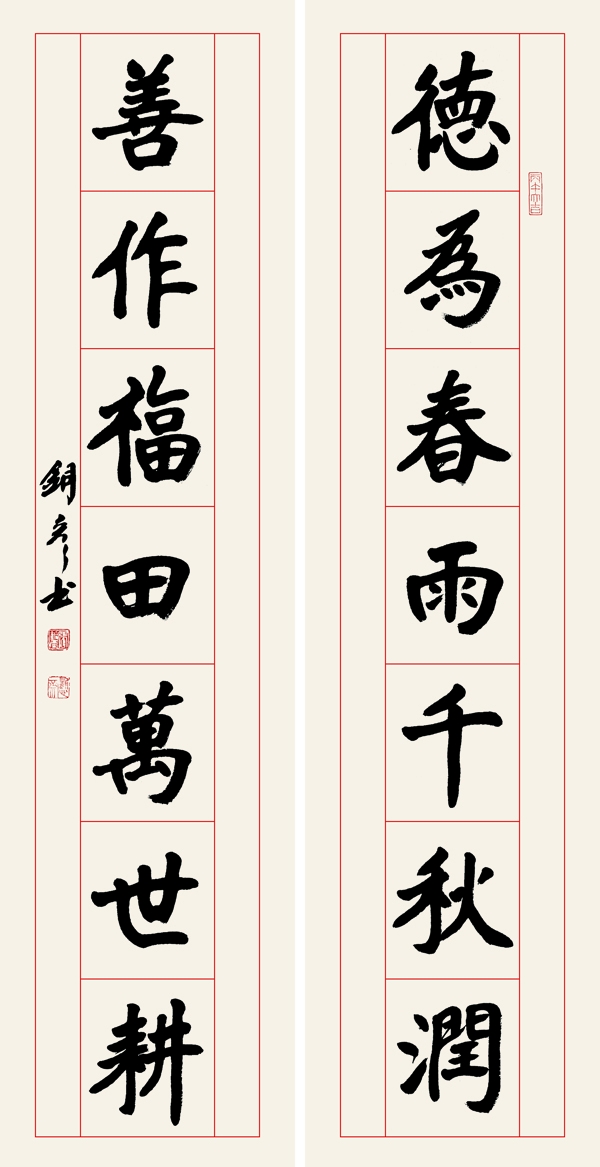 德為春雨千秋潤
善作福田萬世耕